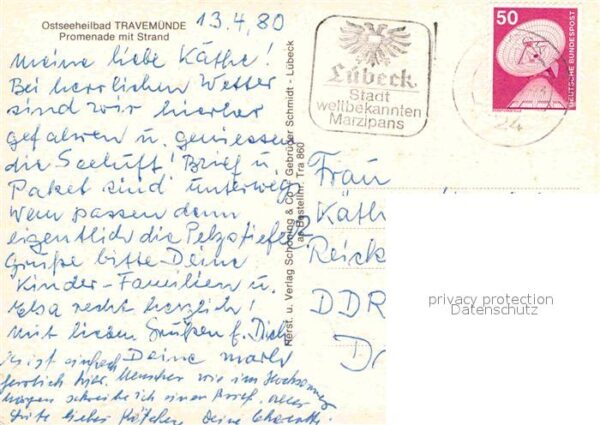 Ostseeheilbad TRAVEMÜNDE
Promenade mit Strand
13.4.80
Meine liebe Käthe!
Bei herrlichem Wetter
sind wir hierher
gefahren u. geniessen
die Seeluft! Brief u
Paket sind unterwegs
Wem passen denn
eigentlich die Pelzstiefel?
Grüße bitte Deine
Kinder-Familien u.
Elsa recht herzlich!
Mit lieben Grüßen f. Dich
Deine
Es ist einfach
herrlich hier. Menschen wie im Hochsommer
morgen schreibe ich einen Brief. Alles
Gute liebes Käthchen Deine
Herst. u. Verlag Schöning & Co + Gebrüder Schmidt - Lübeck
Bestellnr. Tra 860
Lübeck
Stadt
weltbekannten
Marzipans
24
50
DEUTSCHE BUNDESPOST
Frau
Käth
Reick
DDR
privacy protection
Datenschutz